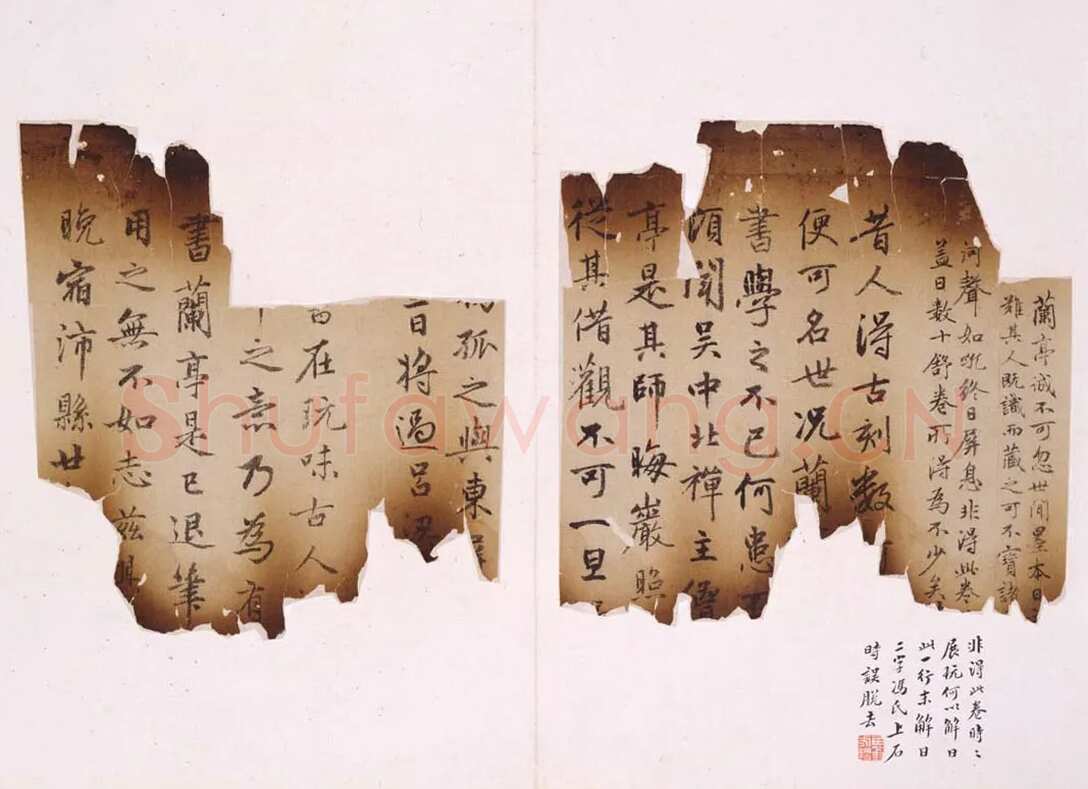 蘭亭誠不可忽世間墨本日
難其人既識而藏之可不寶諸
河聲如吼終日屏息非得此卷
蓋日數十舒卷所得為不少矣
昔人得古刻数
便可名世况蘭
書學之不已何患
頃聞吳中北禪主僧
亭是其師晦巖照
從其借觀不可一旦
孤之與東
日将過吕梁
在玩味古人
之意乃為有
書蘭亭是已退筆
用之無不如志兹
晚宿沛縣廿
非得此卷時〻
展玩何以解日
此一行末解日
二字馮氏上石
時誤脱去
Shufawang.CN